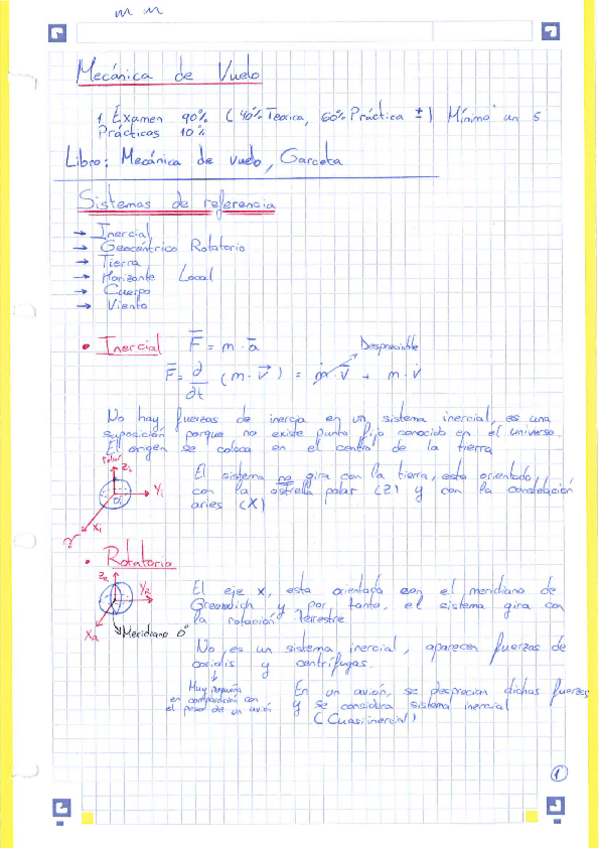 m m
Mecánica de Vuelo
1 Examen 90% (40% Teórica, 60% Práctica ±) Mínimo un 5
Prácticas 10%
Libro: Mecánica de vuelo, Garceta
Sistemas de referencia
→ Inercial
→ Geocéntrico Rotatorio
→ Tierra
→ Horizonte Local
→ Cuerpo
→ Viento
• Inercial F̅ = m · a̅
Despreciable
F̅ = ∂/∂t (m · v⃗) = ṁ · v̅ + m · v̇
No hay fuerzas de inercia en un sistema inercial, es una
suposición porque no existe punto fijo conocido en el universo
El origen se coloca en el centro de la tierra
Polar
Zi
Yi
Oi
Xi
γ
El sistema no gira con la tierra, esta orientado
con la estrella polar (Z) y con la constelación
aries (X)
• Rotatoria
ZR
YR
XR
Meridiano 0º
El eje x, esta orientada con el meridiano de
Greenwich y por tanto, el sistema gira con
la rotación terrestre
No es un sistema inercial, aparecen fuerzas de
coriolis y centrífugas.
Muy pequeña
en comparación con
el peso de un avión
En un avión, se desprecian dichas fuerzas
y se considera sistema inercial
(Cuasiinercial)
1